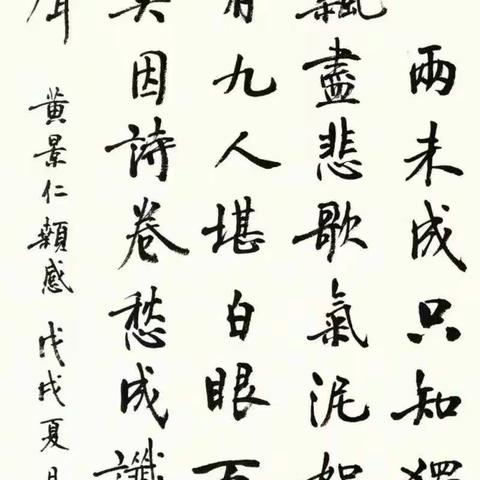 兩未成只知獨
飄盡悲歌氣泥絮
有九人堪白眼百
莫因詩卷愁成讖
聲 黄景仁雜感 戊戌夏月